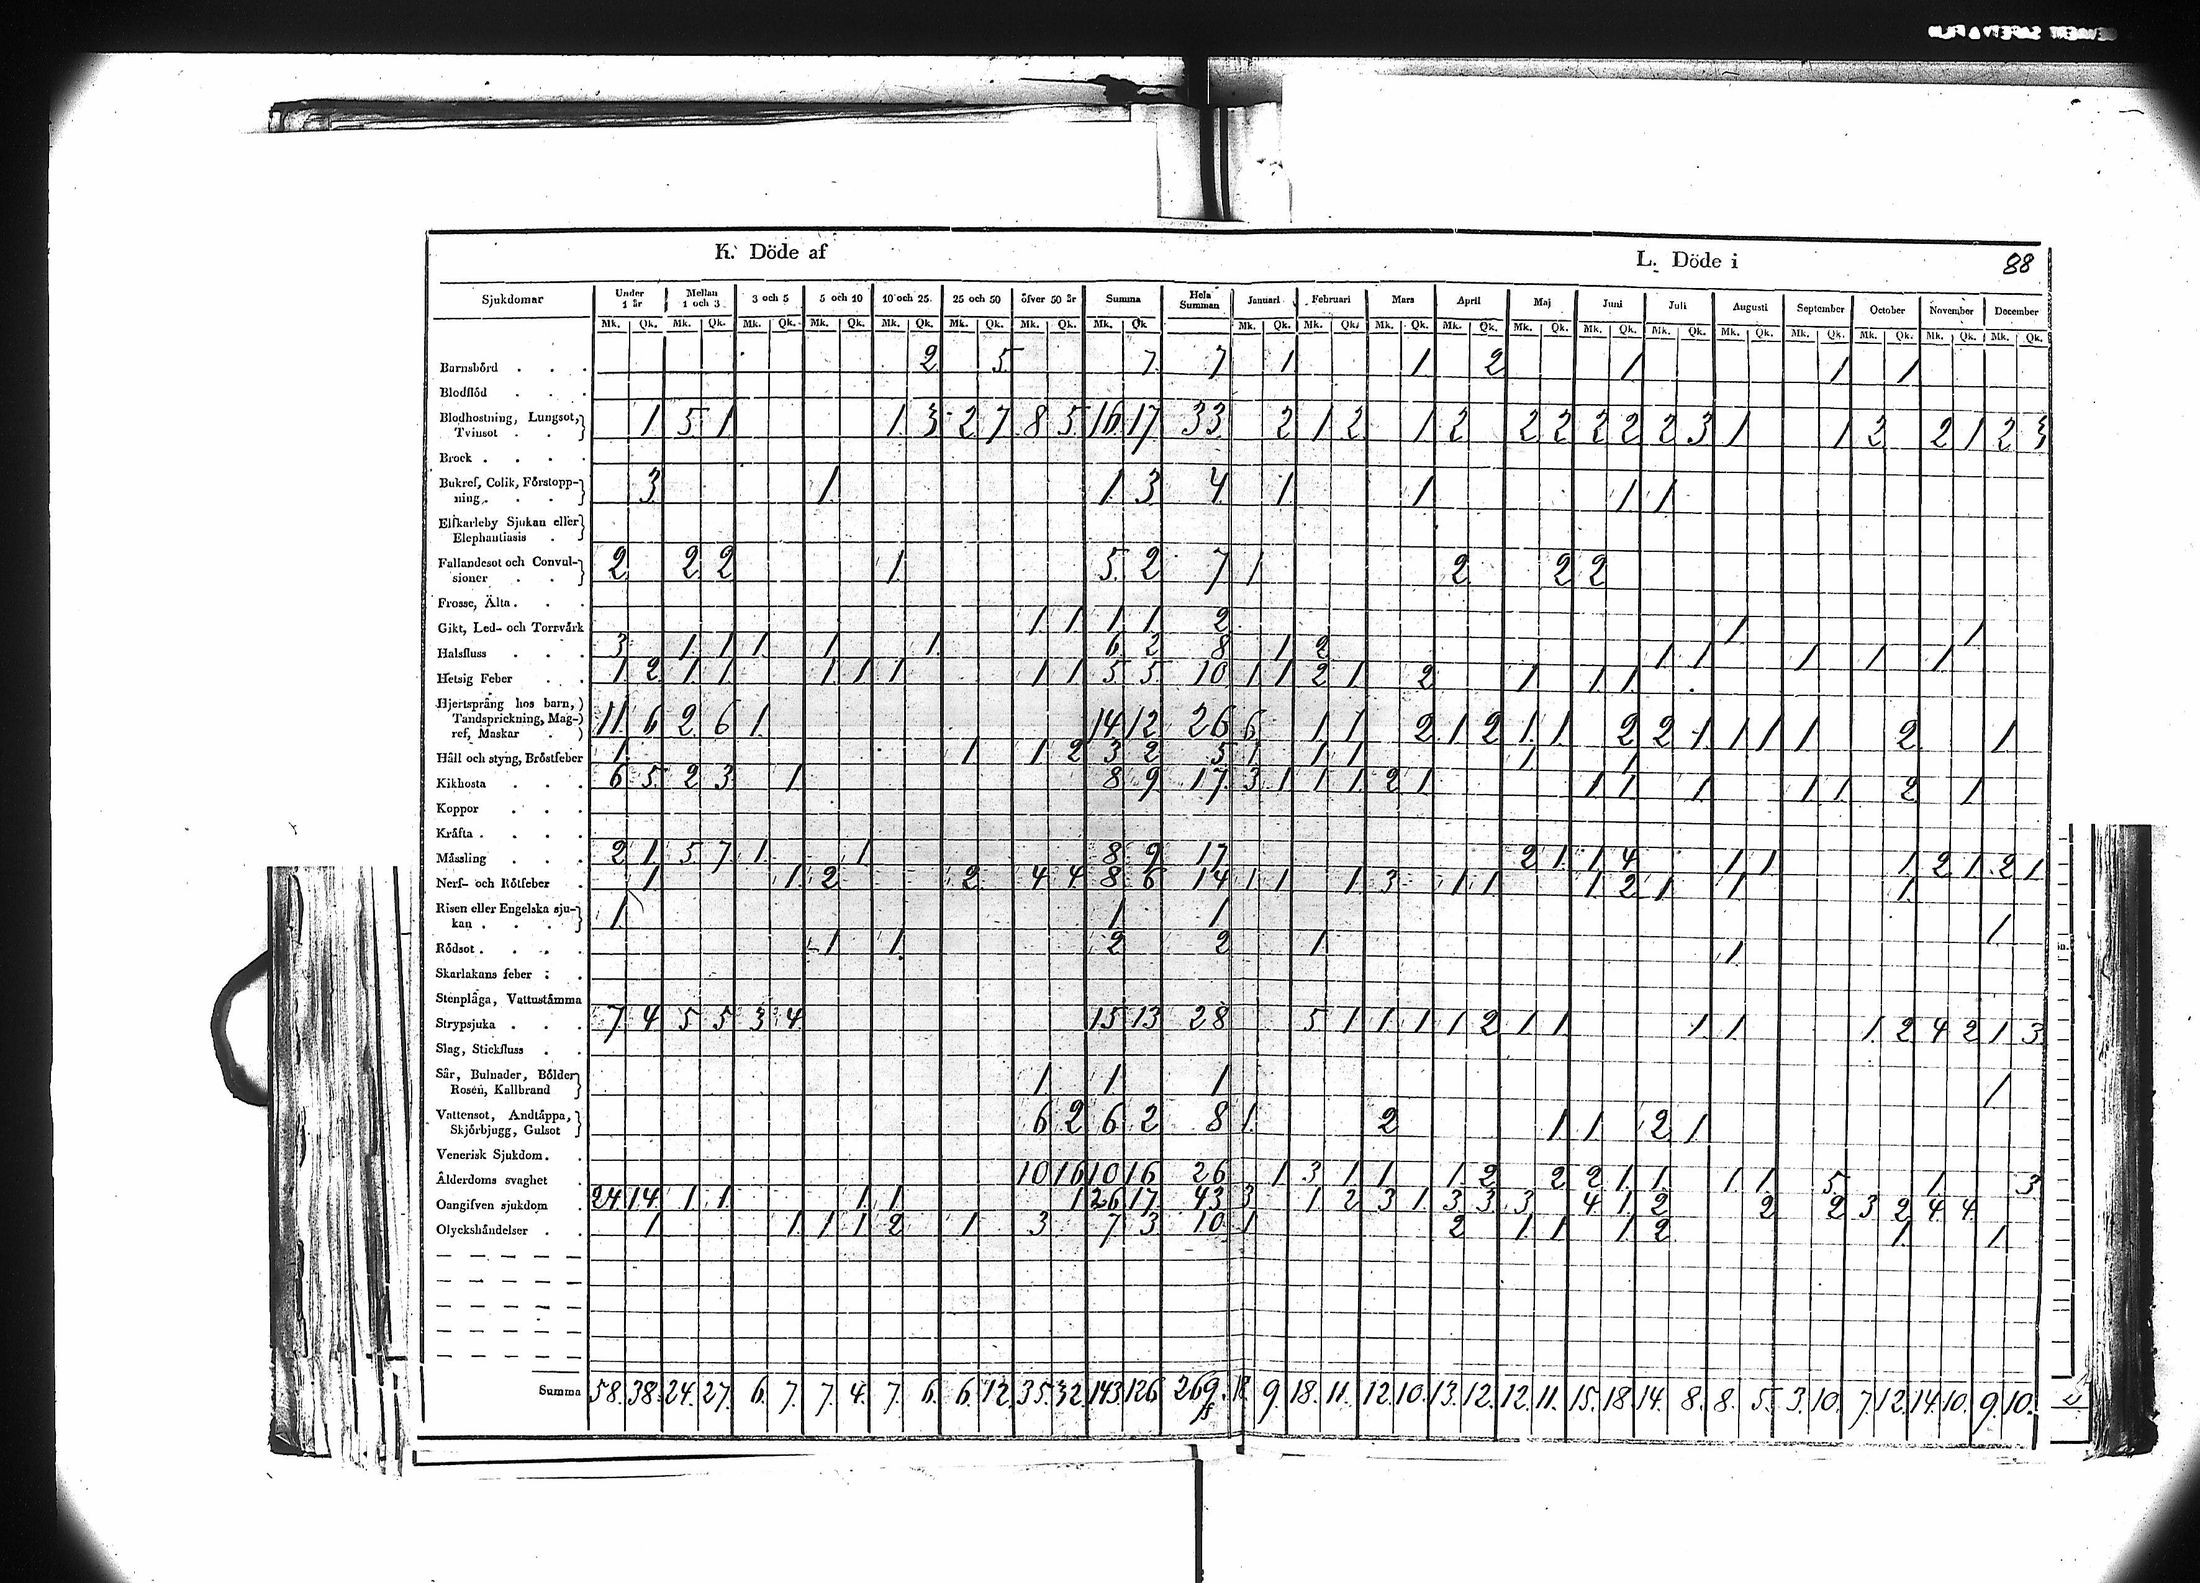 K. Döde af L. Döde i 88
Sjukdomar Under 1 år Mellan 1 och 3 3 och 5 5 och 10 10 och 25 25 och 50 öfver 50 år Summa Hela Summan Januari Februari Mars April Maj Juni Juli Augusti September October November December
Mk. Qk. Mk. Qk. Mk. Qk. Mk. Qk. Mk. Qk. Mk. Qk. Mk. Qk. Mk. Qk Mk. Qk. Mk. Qk. Mk. Qk. Mk. Qk. Mk. Qk. Mk. Qk. Mk. Qk. Mk. Qk. Mk. Qk. Mk. Qk. Mk. Qk. Mk. Qk.
Barnsbörd . . . 2 5 7 7 1 1 2 1 1 1
Blodflöd . . .
Blodhostning, Lungsot,
Tvinsot . . 1 5 1 1 3 2 7 8 5 16 17 33 2 1 2 1 2 2 2 2 2 2 3 1 1 2 2 1 2 3
Brock . . . .
Bukref, Colik, Förstopp-
ning . . . 3 1 1 3 4 1 1 1 1
Elfkarleby Sjukan eller
Elephantiasis .
Fallandesot och Convul-
sioner . . 2 2 2 1 5 2 7 1 2 2 2
Frosse, Älta . . .
Gikt, Led- och Torrvärk 1 1 1 1 2 1 1
Halsfluss . . . 3 1 1 1 1 1 6 2 8 1 2 1 1 1 1 1
Hetsig Feber . . 1 2 1 1 1 1 1 1 1 5 5 10 1 1 2 1 2 1 1 1
Hjertsprång hos barn,
Tandsprickning, Mag-
ref, Maskar . 11 6 2 6 1 14 12 26 6 1 1 2 1 2 1 1 2 2 1 1 1 1 2 1
Håll och styng, Bröstfeber 1 1 1 2 3 2 5 1 1 1 1 1
Kikhosta . . . 6 5 2 3 1 8 9 17 3 1 1 1 2 1 1 1 1 1 1 2 1
Koppor . . .
Kräfta . . . .
Mässling . . . 2 1 5 7 1 1 8 9 17 2 1 1 4 1 1 1 2 1 2 1
Nerf- och Rötfeber . 1 1 2 2 4 4 8 6 14 1 1 1 3 1 1 1 2 1 1 1
Risen eller Engelska sju-
kan . . . . 1 1 1 1
Rödsot . . . . 1 1 2 2 1 1
Skarlakans feber . .
Stenplåga, Vattustämma
Strypsjuka . . . 7 4 5 5 3 4 15 13 28 5 1 1 1 1 2 1 1 1 1 1 2 4 2 1 3
Slag, Stickfluss . .
Sår, Bulnader, Bölder
Rosen, Kallbrand 1 1 1 1
Vattensot, Andtäppa,
Skjörbjugg, Gulsot 6 2 6 2 8 1 2 1 1 2 1
Venerisk Sjukdom . .
Ålderdoms svaghet . 10 16 10 16 26 1 3 1 1 1 2 2 2 1 1 1 1 5 1 3
Oangifven sjukdom . 24 14 1 1 1 1 1 26 17 43 3 1 2 3 1 3 3 3 4 1 2 2 2 3 2 4 4
Olyckshändelser . . 1 1 1 1 2 1 3 7 3 10 1 2 1 1 1 2 1 1
Summa 58. 38. 24. 27. 6. 7. 7. 4. 7. 6. 6. 12. 35. 32. 143. 126 269. 18 9. 18. 11. 12. 10. 13. 12. 12. 11. 15. 18. 14. 8. 8. 5. 3. 10. 7. 12. 14. 10. 9. 10.